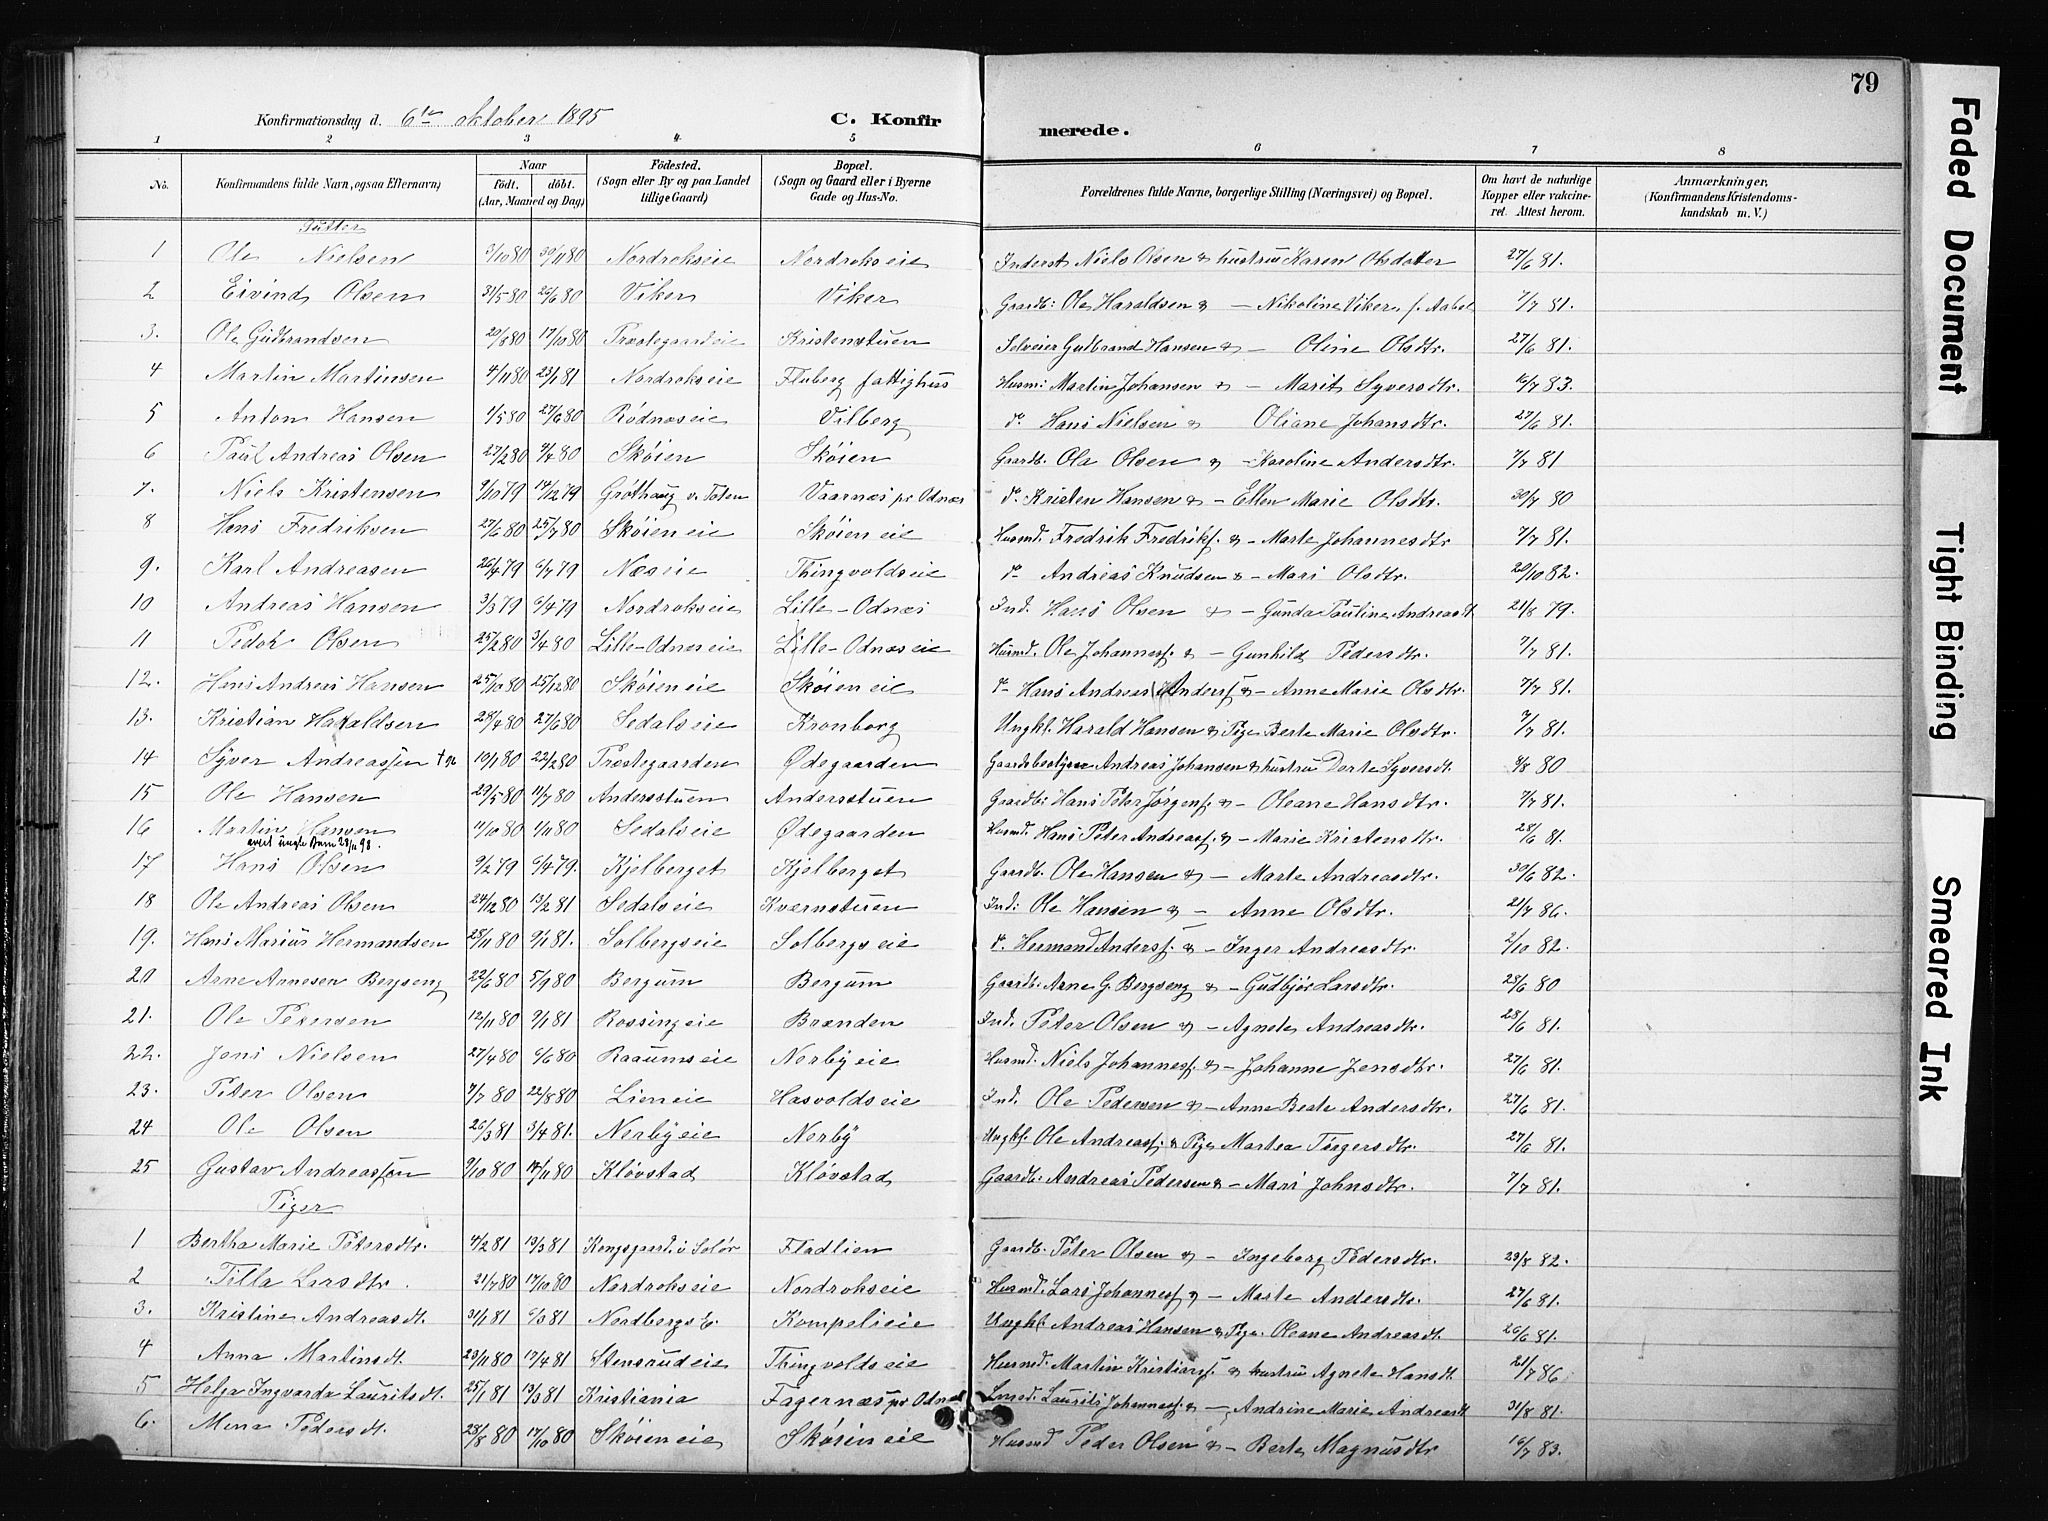 79
Konfirmationsdag d. 6te oktober 1895 C. Konfirmerede.
1 2 3 4 5 6 7 8
No. Konfirmandens fulde Navn, ogsaa Efternavn) Naar födt. döbt. (Aar, Maaned og Dag) Födested. (Sogn eller By og paa Landet tillige Gaard) Bopæl. (Sogn og Gaard eller i Byerne Gade og Hus-No. Forældrenes fulde Navne, borgerlige Stilling (Næringsvei) og Bopæl. Om havt de naturlige Kopper eller vakcineret. Attest herom. Anmærkninger, (Konfirmandens Kristendomskundskab m. V.)
Gutter
1 Ole Nielsen 3/10 80 30/11 80 Nordrokseie Nordrokseie Inderst Niels Olsen & hustru Karen Olsdatter 27/6 81.
2 Eivind Olsen 31/5 80 26/6 80 Viker Viker Gaardb: Ole Haraldsen & — Nikoline Viker 7/7 81.
3. Ole Gudbrandsen 20/8 80 17/10 80 Præstegaardeie Kristenstuen Selveier Gudbrand Hansen & — Oline Olsdtr. 27/6 81.
4 Martin Martinsen 4/11 80 23/1 81 Nordrokseie Fluberg fattighus Husm: Martin Johansen & — Marit Syversdtr. 16/7 83.
5 Anton Hansen 1/5 80 27/6 80 Rödnæseie Vilberg do Hans Nielsen & Oliane Johansdtr. 27/6 81.
6 Paul Andreas Olsen 27/2 80 4/4 80 Sköien Sköien Gaardb. Ole Olsen & — Karoline Andersdtr. 7/7 81
7. Niels Kristensen 9/10 79 14/12 79 Gröthaug v. Toten Vaarnæs pr Odnæs do Kristen Hansen & — Ellen Marie Olsdtr. 30/7 80
8 Hans Fredriksen 27/6 80 25/7 80 Sköieneie Sköieneie Husmd. Fredrik Fredriks. & — Marte Johannesdtr 7/7 81.
9. Karl Andreasen 26/4 79 6/7 79 Næseie Thingvoldseie do Andreas Knudsen & — Mari Olsdtr. 20/10 82.
10 Andreas Hansen 3/3 79 6/4 79 Nordrokseie Lille-Odnæs Ind. Hans Olsen & — Gunda Pauline Andreasdt 21/8 79.
11 Peder Olsen 25/2 80 3/4 80 Lille-Odnæseie Lille-Odnæseie Husmd. Ole Johanness. & — Gunhild Pedersdtr. 7/7 81.
12. Hans Andreas Hansen 25/10 80 25/12 80 Sköieneie Sköieneie do Hans Andreas Anders. & — Anne Marie Olsdtr. 7/7 81.
13. Kristian Haraldsen 28/4 80 27/6 80 Sedalseie Kronborg Ungkl. Harald Hansen & Pige Berte Marie Olsdtr. 7/7 81.
14 Syver Andreassen 10/1 80 22/2 80 Præstegaarden Ødegaarden Gaardsbestyrer Andreas Johansen & hustru Dorte Syversdt. 9/8 80
15 Ole Hansen 29/5 80 11/7 80 Andersstuen Andersstuen Gaardb: Hans Peter Jörgens. & — Oleane Hansdtr. 7/7 81.
16 Martin Hansen 11/10 80 1/11 80 Sedalseie Ødegaarden Husmd. Hans Peter Andreass. & — Marie Kristensdtr. 28/6 81.
28/11 98.
17 Hans Olsen 9/2 79 6/4 79. Kjelberget Kjelberget Gaardb. Ole Hansen & — Marte Andreasdtr. 30/6 82.
18 Ole Andreas Olsen 24/12 80 13/2 81 Sedalseie Kvernstuen Ind: Ole Hansen & — Anne Olsdtr. 21/7 86.
19. Hans Marius Hermandsen 28/11 80 9/1 81. Solbergseie Solbergseie do Hermand Anders. & — Inger Andreasdtr. 2/10 82.
20 Arne Arnesen Bergseng 22/6 80 5/9 80 Bergum Bergum Gaardb: Arne G. Bergseng & — Gudbjör Larsdtr. 28/6 80
21. Ole Petersen 12/11 80 9/1 81 Rossingeie Brænden Ind. Peter Olsen & — Agnete Andreasdtr. 28/6 81.
22. Jens Nielsen 27/4 80 6/6 80 Raaumseie Nerbyeie Husmd. Niels Johanness. & — Johanne Jensdtr. 27/6 81.
23. Peter Olsen 7/7 80 22/8 80 Lieneie Hasvoldseie Ind. Ole Pedersen & — Anne Beate Andersdtr. 27/6 81.
24 Ole Olsen 26/3 81 3/4 81. Nerbyeie Nerby Ungkl. Ole Andreass. & Pige Martea Torgersdtr. 27/6 81.
25 Gustav Andreassen 9/10 80 14/11 80 Klövstad Klövstad Gaardb: Andreas Pedersen & — Mari Johnsdtr. 7/7 81.
Piger
1 Bertha Marie Petersdtr. 4/2 81 13/3 81 Kongsgaard i Solör Fladlien Gaardb: Peter Olsen & — Ingeborg Pedersdtr. 29/8 82.
2 Tilla Larsdtr. 21/7 80 17/10 80 Nordrokseie Nordrokseie Husmd. Lars Johanness. & — Marte Andersdtr. 27/6 81.
3. Kristine Andreasdt. 31/1 81 6/3 81 Nordbergs Kompelieie Ungkl. Andreas Hansen & Pige Oleane Andreasdt. 26/6 81.
4 Anna Martinsdt. 23/11 80 17/4 81 Stensrudeie Thingvoldseie Husmd. Martin Kristians. & hustru Agnete Hansdt. 21/7 86
5 Helga Ingvarda Lauritsdt. 25/1 81 13/3 81 Kristiania Fagernæs pr Odnæs Laurits Johanness. & — Andrine Marie Andreasdt 31/8 81.
6. Mina Pedersdt. 28/8 80 17/10 80 Sköieneie Sköieneie Husmd Peder Olsen & — Berte Magnusdtr 16/7 83.
Faded Document
Tight Binding
Smeared Ink